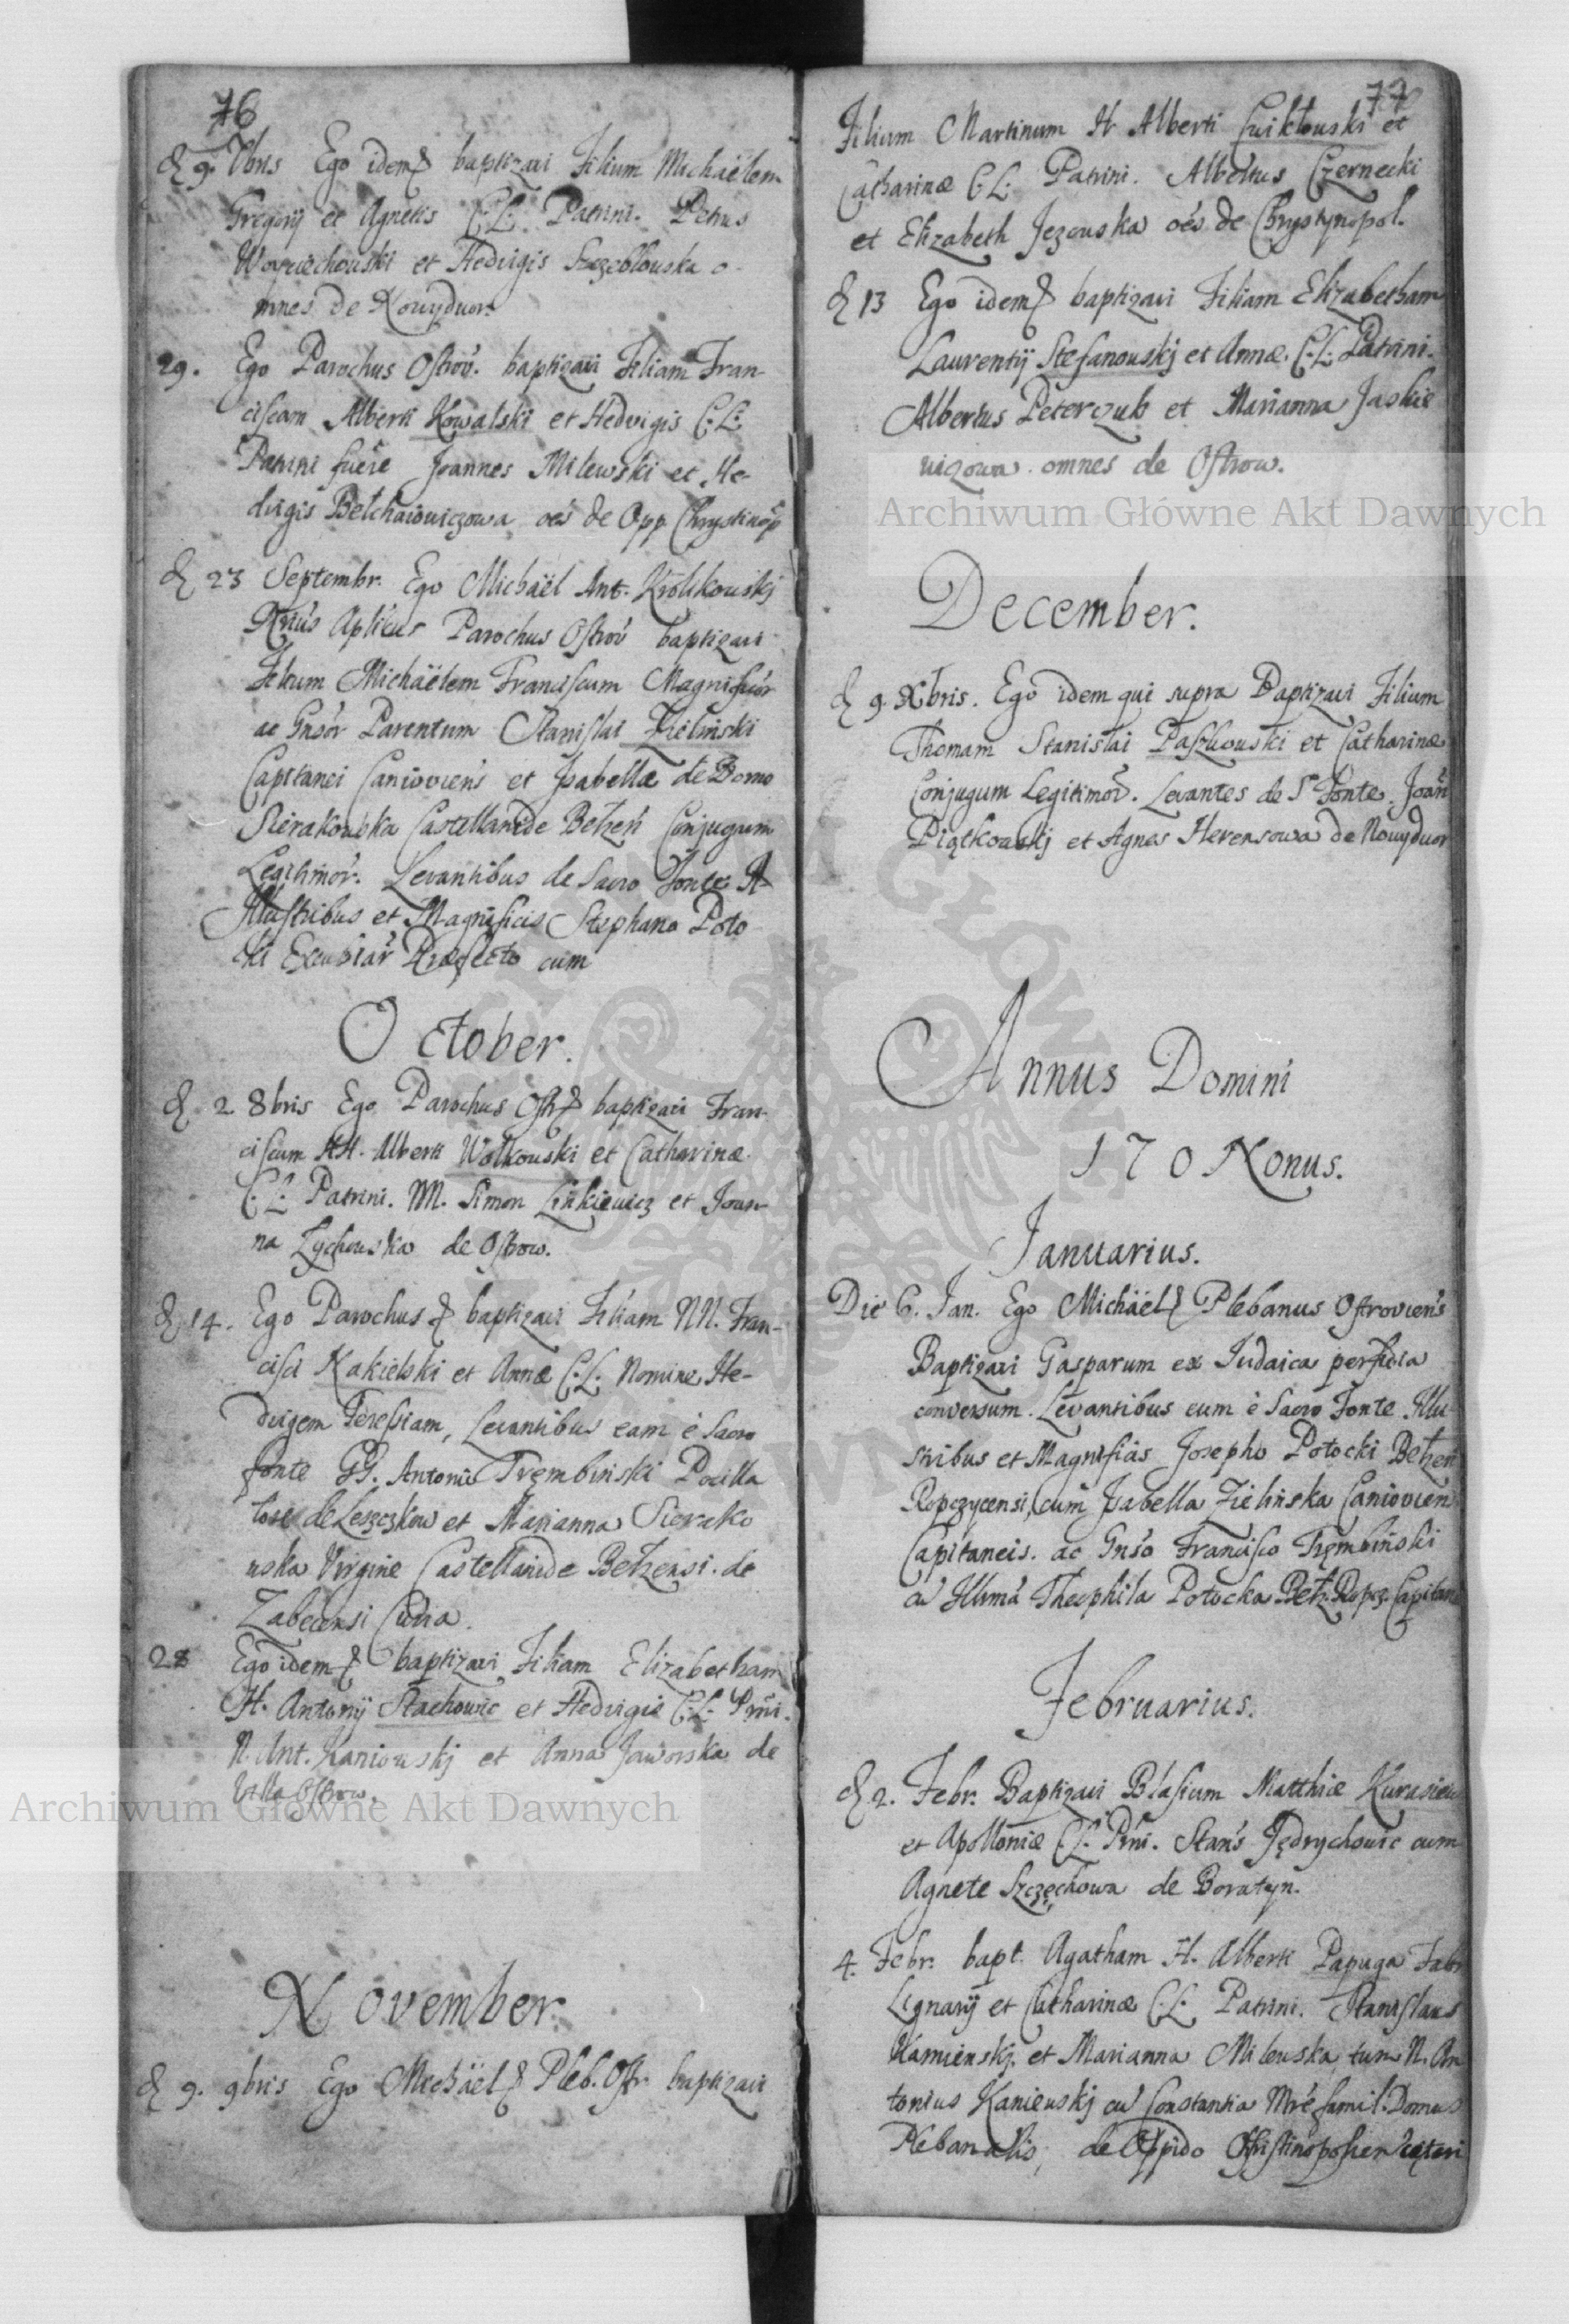 76
d 9. Vbris Ego idem baptizavi Filium Michaëlem
Gregorij et Agnetis C. L. Patrini. Petrus
et Hedvigis o-
mnes de Nowydwor.
29. Ego Parochus Ostrov. baptizavi Filiam Fran-
ciscam Alberti Kowalski et Hedvigis C. L.
Patrini fuere Joannes Milewski et He-
dvigis Bełchaiowiczowa oes de Opp. Chrystinop
d 23 Septembr. Ego Michaël Ant. Krolikowskj
Aplicus Parochus Ostrov baptizavi
Filium Michaëlem Franciscum Magnificor
ac Gnsor Parentum Stanislai Zielinski
Capitanei Canioviens et Isabellæ de Domo
Sierakowska Castellanide Bełzen Conjugum
Legitimor. Levantibus de Sacro Fonte
Illustribus et Magnificis Stephano Poto
cki Excubiar Præfecto cum
October.
d. 2 8bris Ego Parochus Ostr baptizavi Fran-
ciscum HH. Alberti Wołkowski et Catharinæ
C. L. Patrini. NN. Simon Linkiewicz et Joan-
na Zychowska de Ostrow.
d 14. Ego Parochus baptizavi Filiam NN. Fran-
cisci Kakielski et Annæ C. L. Nomine He-
dvigem Teressiam, Levantibus eam è Sacro
fonte GG. Antonio Trembinski Pocilla
tore de Leszczkow et Marianna Sierako
wska Virgine Castellanide Bełzensi. de
Zabecensi Curia.
28 Ego idem baptizavi Filiam Elizabetham
H. Antonij Stachowic et Hedvigis C. L. Prni.
N. Ant. Kaniowskj et Anna Jaworska de
Villa Ostrow.
November.
d 9. 9bris Ego Michaël Pleb. Ostr. baptizavi
77
Filium Martinum H Alberti Cwiklowski et
Catharinæ C. L. Patrini. Albertus Czernecki
et Elizabeth Jezowska oes de Chrystynopol.
d 13 Ego idem baptizavi Filiam Elizabetham
Laurentij Stefanowskj et Annæ. C. L. Patrini.
Albertus Peterczub et Marianna Jaskie
wiczowa. omnes de Ostrow.
December.
d 9. Xbris. Ego idem qui supra Baptizavi Filium
Thomam Stanislai Paszkowski et Catharinæ
Conjugum Legitimor. Levantes de S Fonte. Joan
Piątkowskj et Agnes Herensowa de Nowydwor
Annus Domini
170 Nonus.
Ianuarius.
Die 6. Jan. Ego Michaël Plebanus Ostroviens
Baptizavi Gasparum ex Iudaica perfidia
conversum. Levantibus eum è Sacro Fonte Illu
stribus et Magnificis Josepho Potocki Bełzen
Ropczycensi, cum Isabella Zielińska Caniovien
Capitaneis. ac Gnso Francisco Trembinski
cu Illma Theophila Potocka Bełz. Ropcz. Capitane
Februarius.
d 2. Febr. Baptizavi Blasium Matthiæ Kurasiew
et Apolloniæ C. L. Prni. Stans Jędrychowic cum
Agnete Szczęchowa de Boratyn.
4. Febr. bapt. Agatham H. Alberti Papuga Fabr
Lignarij et Catharinæ C. L. Patrini. Stanislaus
Kamienskj. et Marianna Milewska, tum N. An
tonius Kaniewskj cu Constantia Mre famil. Domus
Plebanalis, de Oppido ceteri
Archiwum Główne Akt Dawnych
Archiwum Główne Akt Dawnych